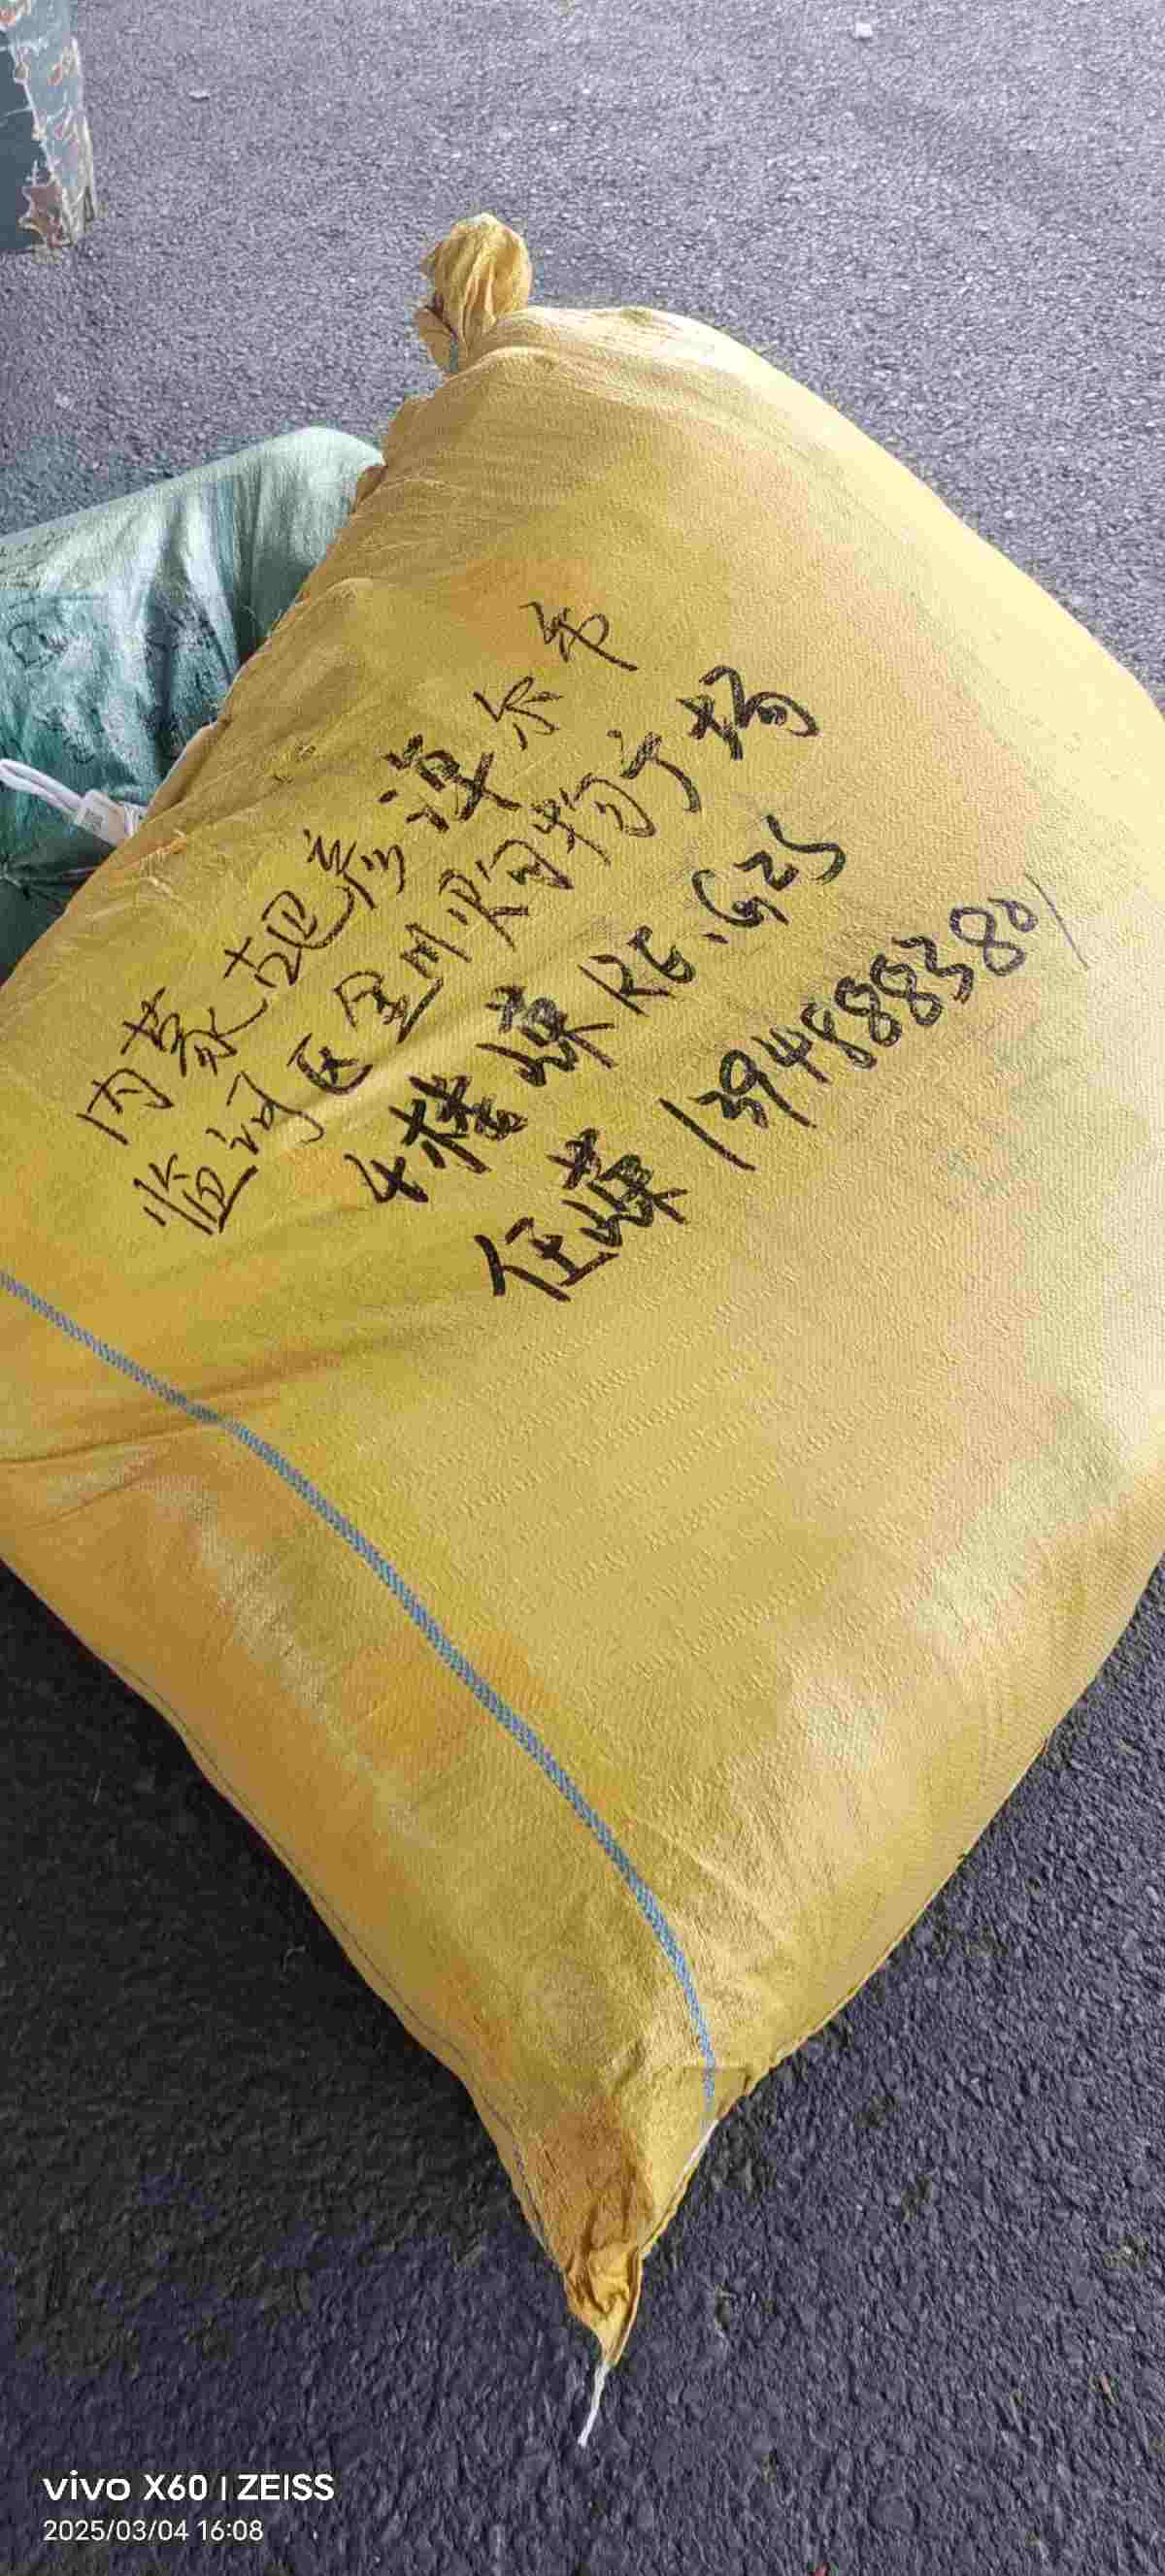 内蒙古巴彦淖尔市
临河区金川购物广场
4楼蝶 RE.G25
任蝶 13948883801
vivo X60 | ZEISS
2025/03/04 16:08